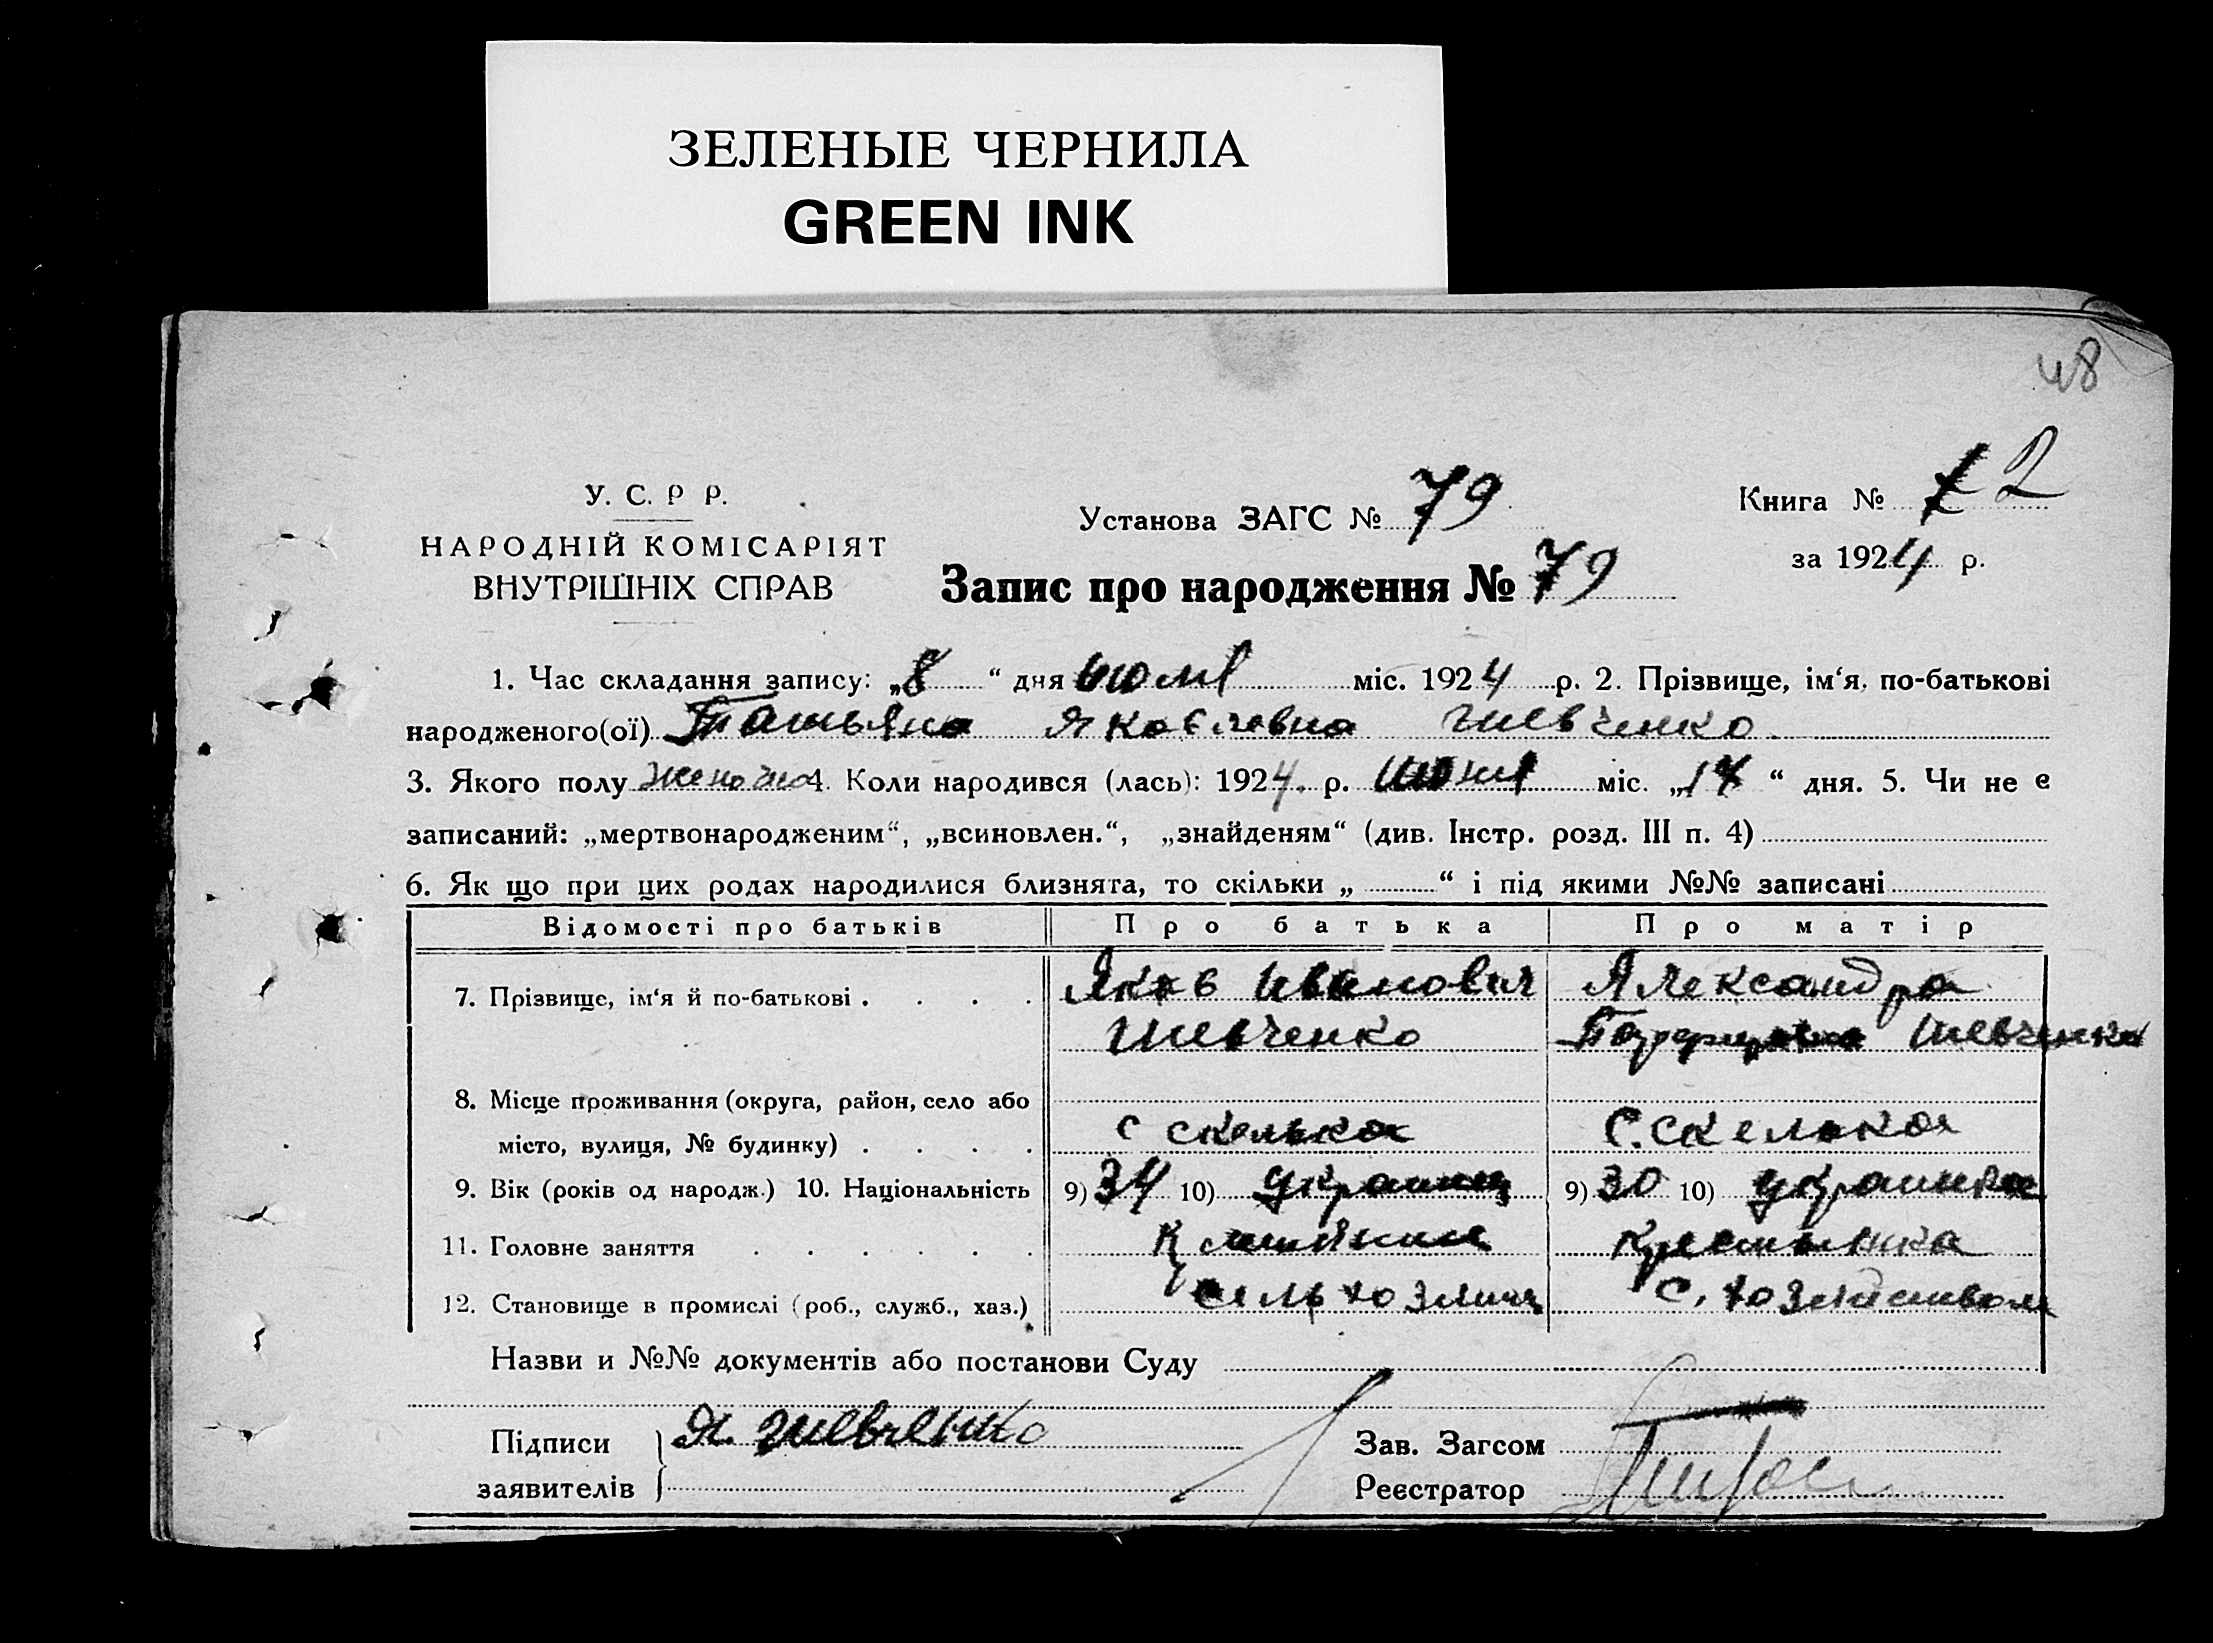 ЗЕЛЕНЫЕ ЧЕРНИЛА
GREEN INK
48
У. С. Р Р.
НАРОДНІЙ КОМІСАРІЯТ
ВНУТРІШНІХ СПРАВ
Установа ЗАГС № 79
Книга № 2
за 1924 р.
Запис про народження № 79
1. Час складання запису: „8“ дня июля міс. 1924 р. 2. Прізвище, ім‘я, по-батькові
народженого(ої) Татьяна Яковлевна Шевченко
3. Якого полу 4. Коли народився (лась): 1924. р. міс. „17“ дня. 5. Чи не є
записаний: „мертвонародженим“, „всиновлен.“, „знайденям“ (див. Інстр. розд. III п. 4)
6. Як що при цих родах народилися близнята, то скільки „ “ і під якими №№ записані
Відомості про батьків Про батька Про матір
7. Прізвище, ім‘я й по-батькові . . . . Яков Иванович Александра
Шевченко Шевченко
8. Місце проживання (округа, район, село або
місто, вулиця, № будинку) . . . . с скелька С. скелька
9. Вік (років од народж.) 10. Національність 9) 34 10) Украинец 9) 30 10) украинка
11. Головне заняття . . . . . . крестьянка
12. Становище в промислі (роб., служб., хаз.) с. хозяйством
Назви и №№ документів або постанови Суду
Підписи Я. Шевченко Зав. Загсом
заявителів Реєстратор